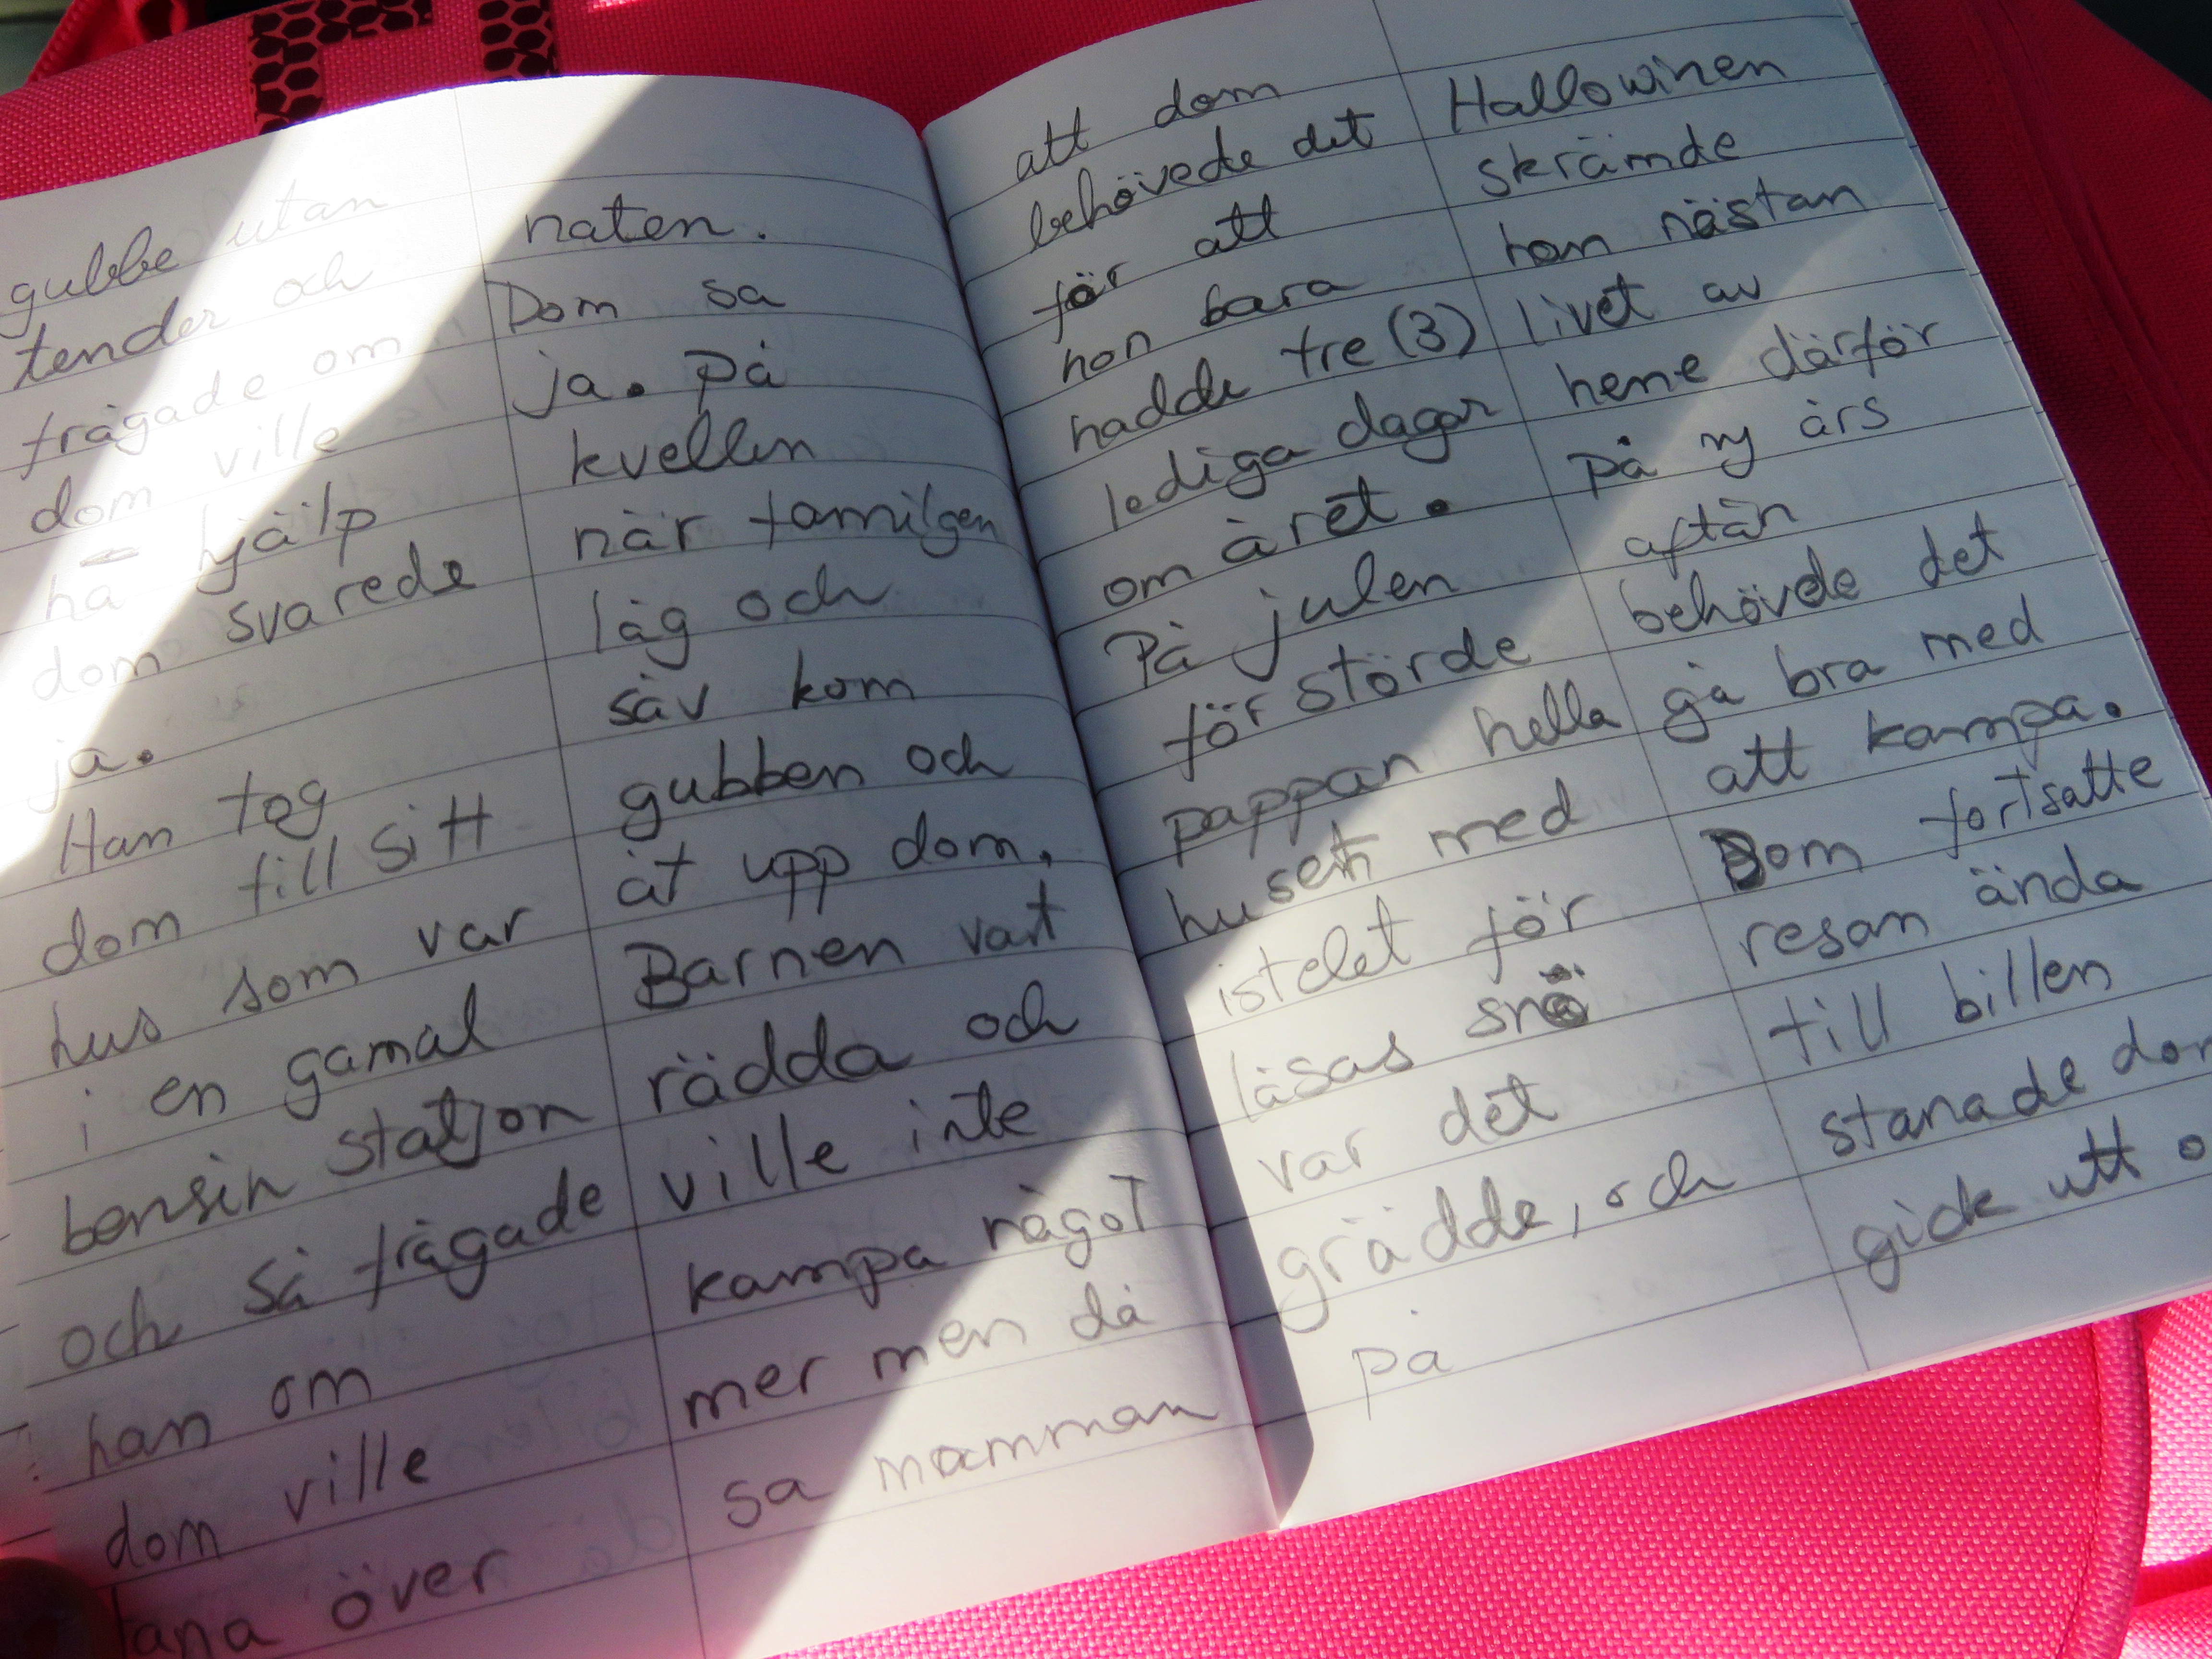 gubbe utan
tender och
frågade om
dom ville
ha hjälp
dom svarede
ja.
Han tog
dom till sitt
hus som var
i en gamal
bensin station
och så frågade
han om
dom ville
tana över
naten.
Dom sa
ja. på
kvellen
när familgen
låg och
såv kom
gubben och
åt upp dom.
Barnen vart
rädda och
ville inte
kampa något
mer men då
sa mamman
att dom
behövede det
för att
hon bara
hadde tre (3)
lediga dagar
om året.
På julen
för störde
pappan hella
huset med
istelet för
låsas snö
var det
grädde, och
på
Hallowinen
skrämde
hon nästan
livet av
heme därför
på ny års
aftån
behövde det
gå bra med
att kampa.
Dom fortsatte
resan ända
till billen
stanade dom
gick utt o